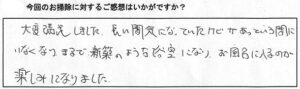 今回のお掃除に対するご感想はいかがですか？
大変満足しました。長い間気になっていたカビがあっという間に
いなくなりまるで新築のような浴室になり、お風呂に入るのが
楽しみになりました。